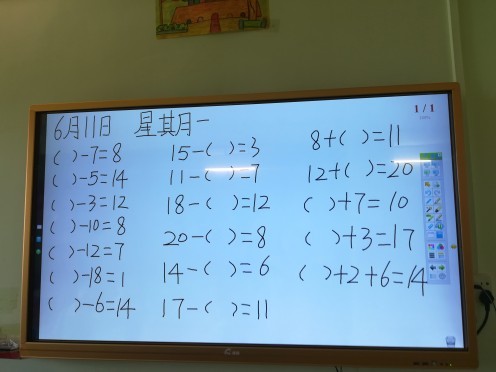 6月11日 星期一
( )-7=8
( )-5=14
( )-3=12
( )-10=8
( )-12=7
( )-18=1
( )-6=14
15-( )=3
11-( )=7
18-( )=12
20-( )=8
14-( )=6
17-( )=11
1/1
8+( )=11
12+( )=20
( )+7=10
( )+3=17
( )+2+6=14